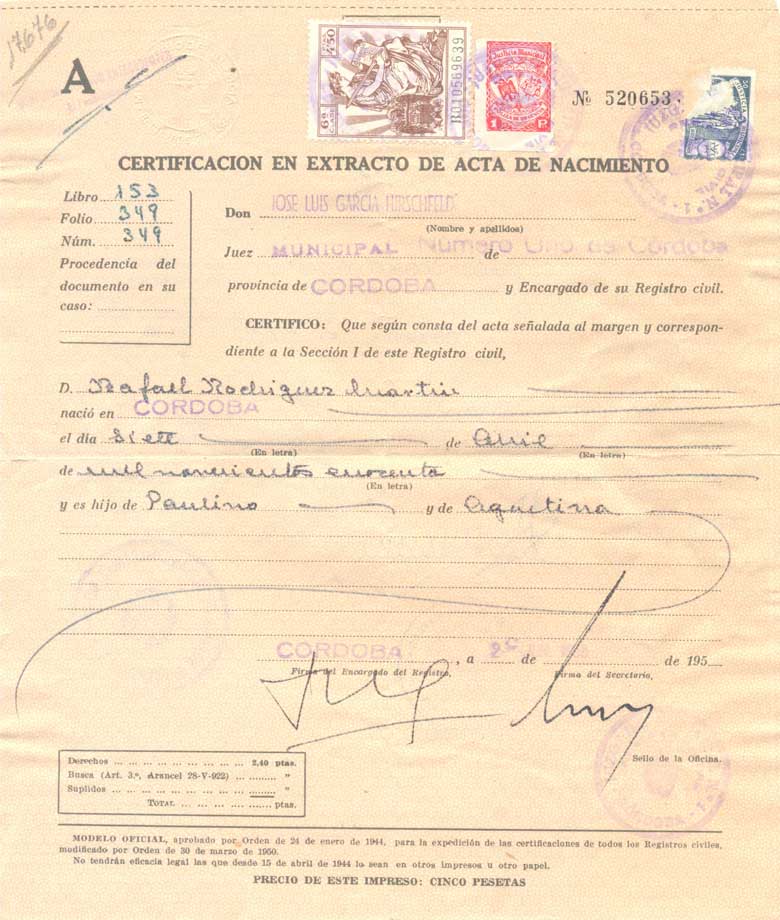 17.676
A
PTAS 4'50
6ª CLASE
R010569639
Justicia Municipal
1 P.
JUSTICIA
№ 520653
CERTIFICACION EN EXTRACTO DE ACTA DE NACIMIENTO
Libro 153
Folio 349
Núm. 349
Procedencia del
documento en su
caso:
Don JOSE LUIS GARCIA HIRSCHFELD
(Nombre y apellidos)
Juez MUNICIPAL Número Uno de Córdoba de
provincia de CORDOBA y Encargado de su Registro civil.
CERTIFICO: Que según consta del acta señalada al margen y correspon-
diente a la Sección I de este Registro civil,
D. Rafael Rodriguez Martin
nació en CORDOBA
el día Siete de Abril
(En letra) (En letra)
de mil novecientos cuarenta
(En letra)
y es hijo de Paulino y de Agustina
CORDOBA, a de de 195
Firma del Encargado del Registro, Firma del Secretario,
Sello de la Oficina.
Derechos ... ... ... ... ... ... ... ... ... 2,40 ptas.
Busca (Art. 3.º, Arancel 28-V-922) ... ......... "
Suplidos ... ... ... ... ... ... ... ... ... ......... "
TOTAL ... ... ... ... ...... ptas.
MODELO OFICIAL, aprobado por Orden de 24 de enero de 1944, para la expedición de las certificaciones de todos los Registros civiles,
modificado por Orden de 30 de marzo de 1950.
No tendrán eficacia legal las que desde 15 de abril de 1944 lo sean en otros impresos u otro papel.
PRECIO DE ESTE IMPRESO: CINCO PESETAS